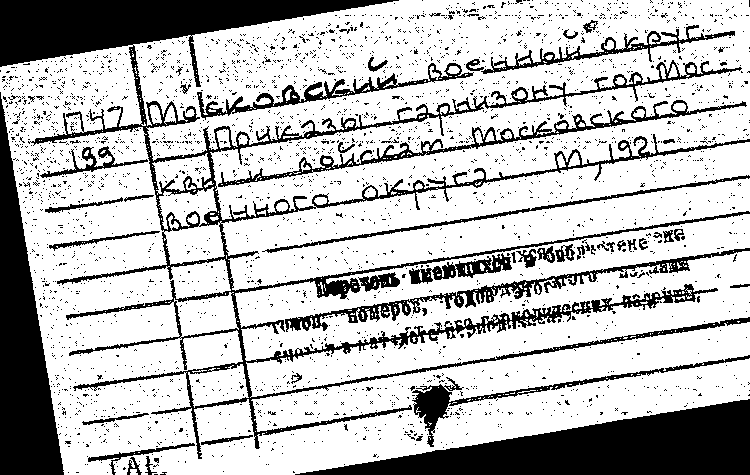 П47 Московский военный округ.
199 Приказы гарнизону гор. Мос-
квы и войскам Московского
военного округа. М., 1921-
Перечень имеющихся в библиотеке
томов, номеров, годов этого издания
в каталоге периодических изданий.